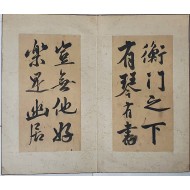 衡門之下
有琴有書
豈無他好
樂是幽居